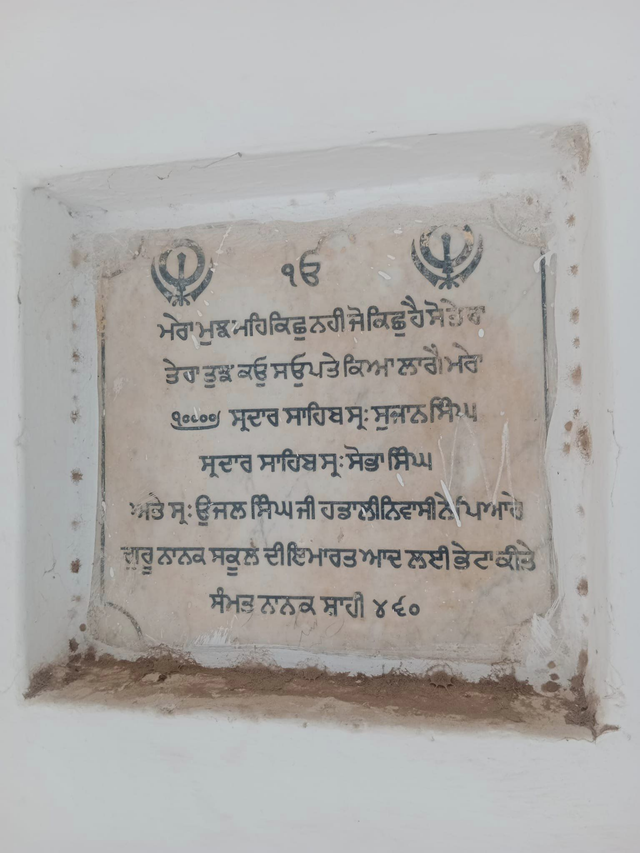 ੧ਓ
ਮੇਰਾ ਮੁਝ ਮਹਿ ਕਿਛੁ ਨਹੀ ਜੋ ਕਿਛੁ ਹੈ ਸੋ ਤੇਰਾ
ਤੇਰਾ ਤੁਝ ਕਓੁ ਸਓੁਪਤੇ ਕਿਆ ਲਾਗੈ ਮੇਰਾ
ਸ੍ਰਦਾਰ ਸਾਹਿਬ ਸ੍ਰ: ਸੁਜਾਨ ਸਿੰਘ
ਸ੍ਰਦਾਰ ਸਾਹਿਬ ਸ੍ਰ: ਸੋਭਾ ਸਿੰਘ
ਅਤੇ ਸ੍ਰ: ਉਜਲ ਸਿੰਘ ਜੀ ਹਡਾਲੀ ਨਿਵਾਸੀ ਨੇ ਪਿਆਰੇ
ਗੁਰੂ ਨਾਨਕ ਸਕੂਲ ਦੀ ਇਮਾਰਤ ਆਦ ਲਈ ਭੇਟਾ ਕੀਤੇ
ਸੰਮਤ ਨਾਨਕ ਸ਼ਾਹੀ ੪੬੦